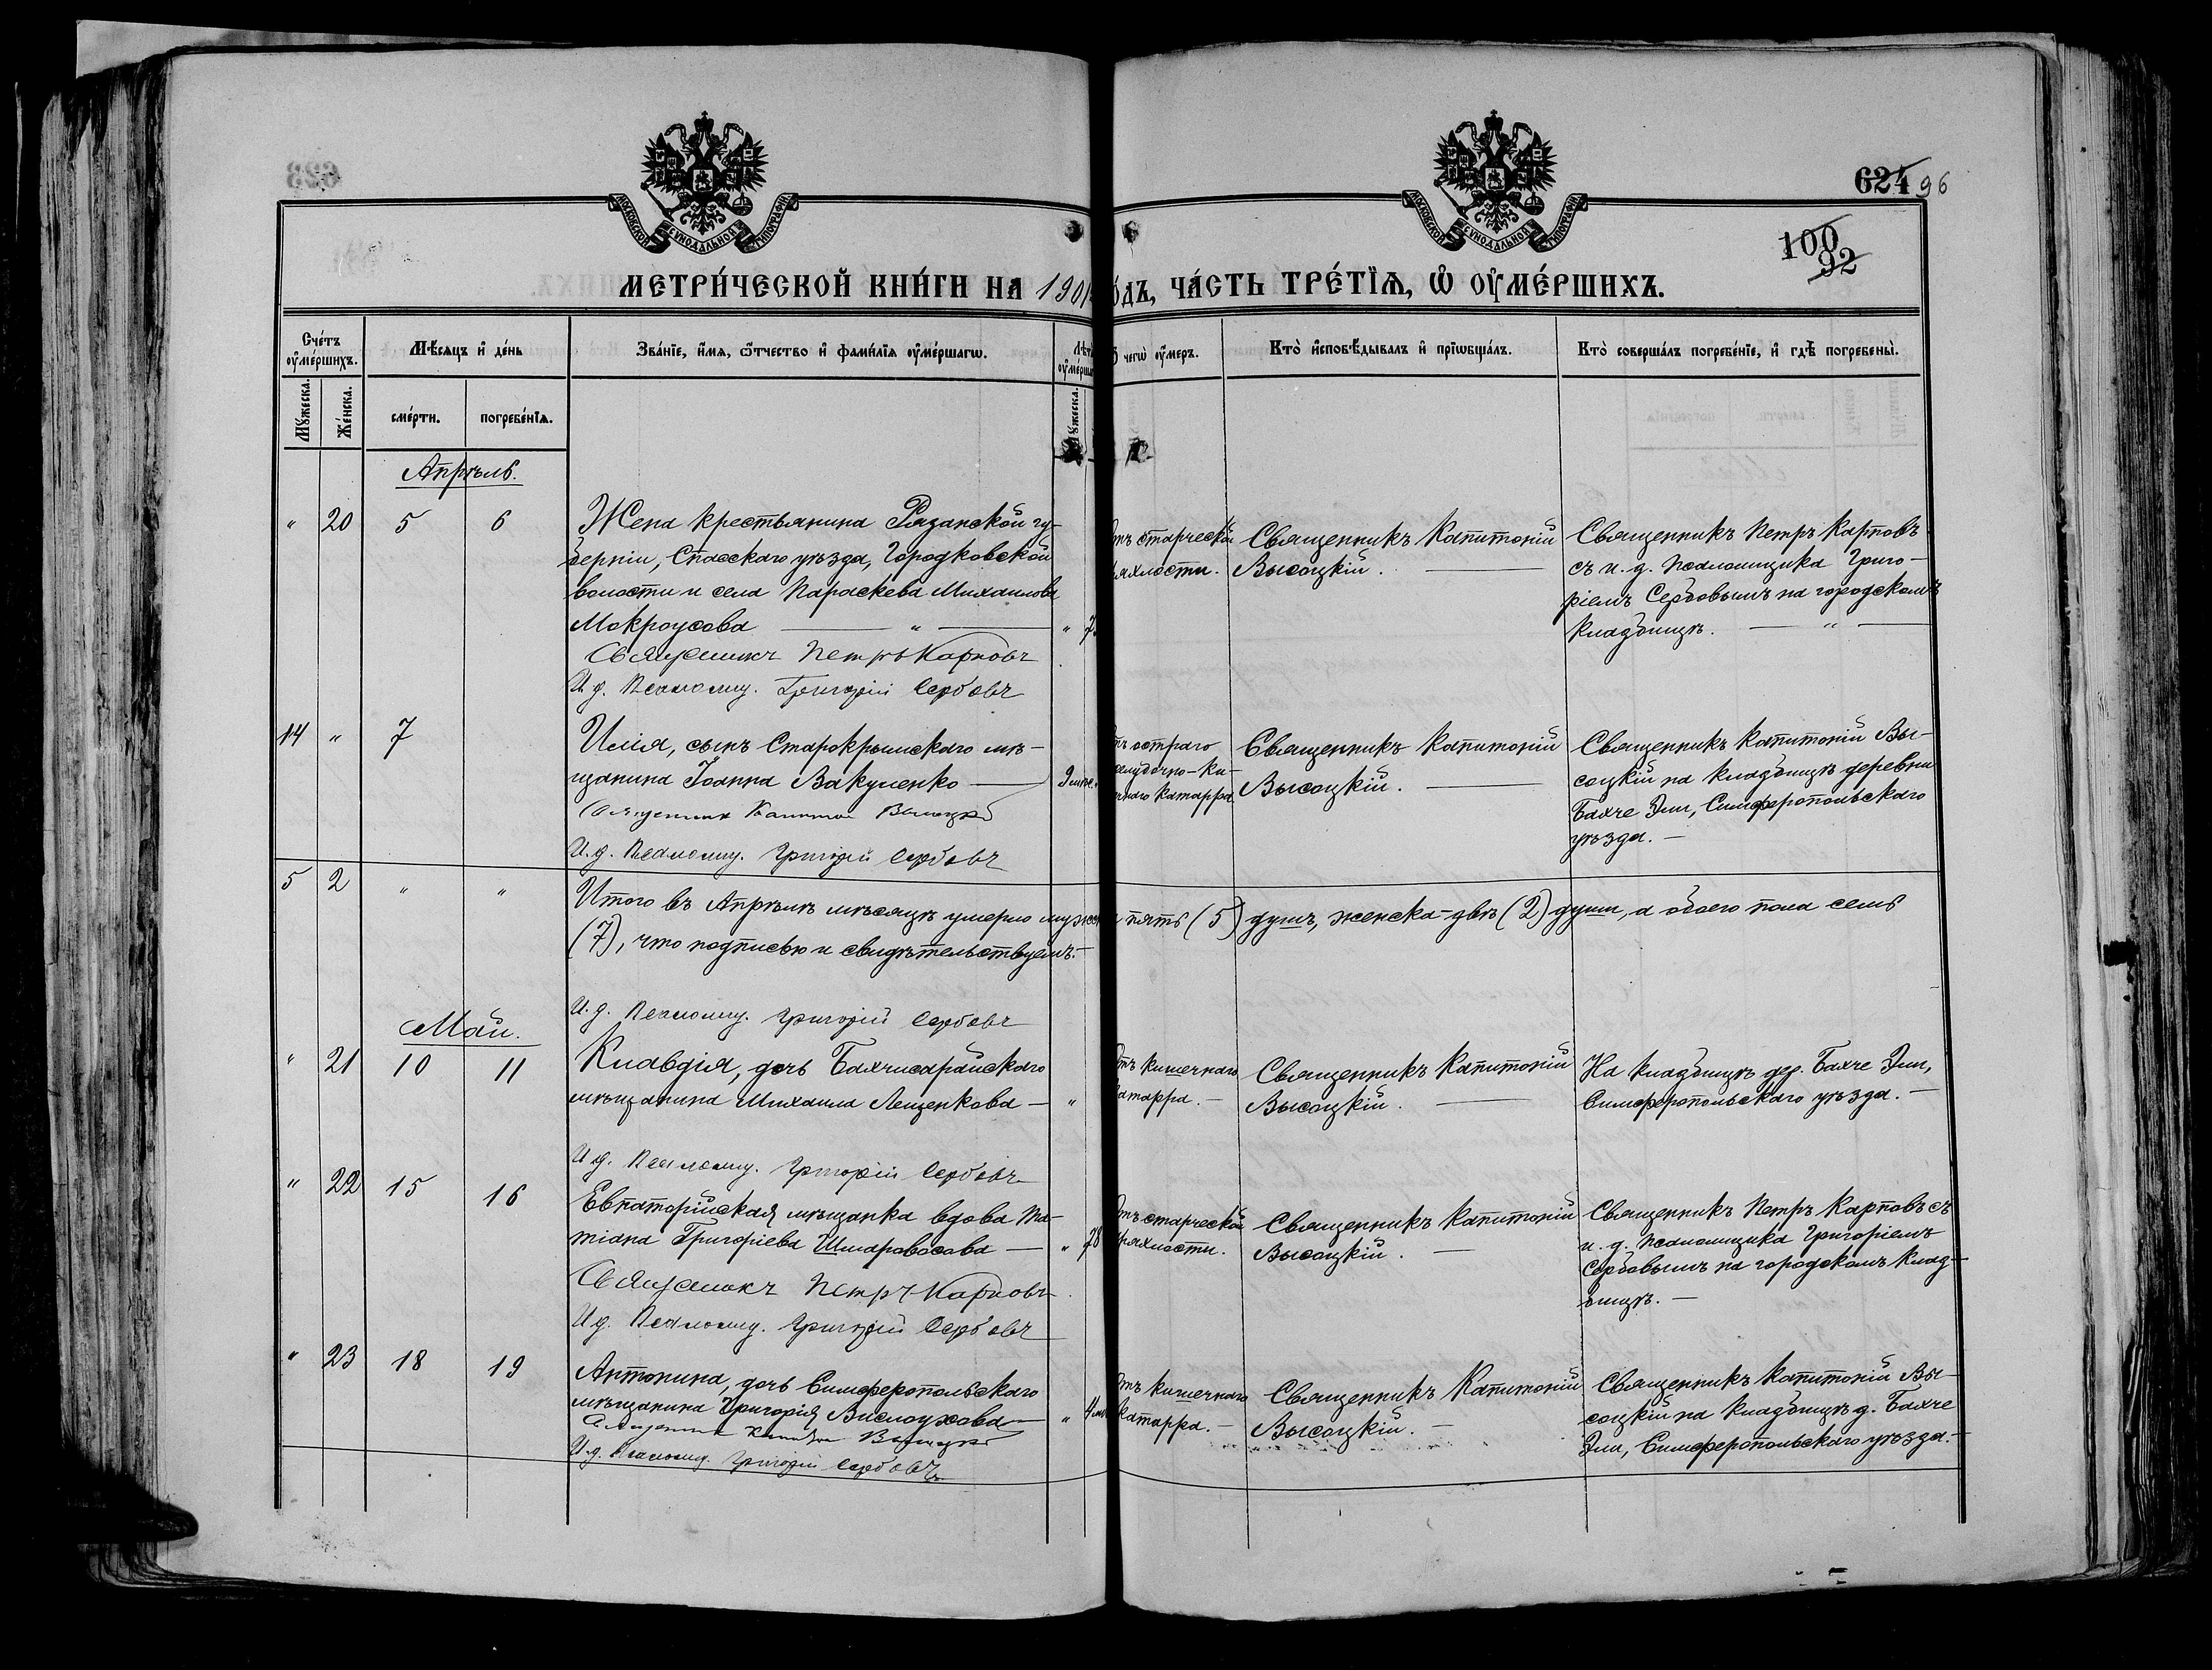 МОСКОВСКОЙ СУНОДАЛЬНОЙ ТИПОГРАФІИ
МОСКОВСКОЙ СУНОДАЛЬНОЙ ТИПОГРАФІИ
624 96
100
92
МЕТРИ́ЧЕСКОЙ КНИ́ГИ НА 1901
О́ДЪ, ЧА́СТЬ ТРЕ́ТЇѦ, Ѡ҆ ОУ҆МЕ́РШИХЪ.
Сче́тъ оу҆ме́ршихъ.
Мѣ́сѧцъ и҆ де́нь
Зва́нїе, и҆́мѧ, ѻ҆́тчество и҆ фами́лїѧ оу҆ме́ршагѡ.
Лѣт
оу҆ме́рша
чегѡ̀ оу҆́меръ.
Кто̀ и҆сповѣ́дывалъ и҆ прїѡбща́лъ.
Кто̀ соверша́лъ погребе́нїе, и҆ гдѣ̀ погребены̀.
Мꙋ́жеска.
Же́нска.
сме́рти.
погребе́нїѧ.
Мꙋ́жеска.
Апрѣль.
" 20 5 6
Жена крестьянина Рязанской гу-
берніи, Спасскаго уѣзда, Городковской
волости и села Параскева Михаилова
Мокроусова — " —
Священникъ Петръ Карповъ
И. д. Псаломщ. Григорій Сербовъ
" 7
тъ старческой
яхлости.
Священникъ Капитоній
Высоцкій.
Священникъ Петръ Карповъ
съ и. д. псаломщика Григо-
ріемъ Сербовымъ на городскомъ
кладбищѣ. — " —
14 " 7
Илія, сынъ Старокрымскаго мѣ-
щанина Іоанна Вакуленко —
Священник Капитон Высоцкій
И. д. Псаломщ. Григорій Сербовъ
тъ остраго
елудочно-ки-
чнаго катарра
Священникъ Капитоній
Высоцкій.
Священникъ Капитоній Вы-
соцкій на кладбищѣ деревни
Бахче Эли, Симферопольскаго
уѣзда. —
5 2 " "
Итого въ Апрѣлѣ мѣсяцѣ умерло муже пять (5) душъ, женска-двѣ (2) души, а обоего пола семь
(7), что подписью и свидѣтельствуемъ. —
И. д. Псаломщ. Григорій Сербовъ
Май.
" 21 10 11
Клавдія, дочь Бахчисарайскаго
мѣщанина Михаила Лещенкова —
И. д. Псаломщ. Григорій Сербовъ
"
тъ кишечнаго
атарра. —
Священникъ Капитоній
Высоцкій.
На кладбищѣ дер. Бахче Эли,
Симферопольскаго уѣзда. —
" 22 15 16
Евпаторійская мѣщанка вдова Та-
тіана Григоріева Шмаровозова —
Священникъ Петръ Карповъ
И. д. Псаломщ. Григорій Сербовъ
" 78
тъ старческой
ряхлости.
Священникъ Капитоній
Высоцкій. —
Священникъ Петръ Карповъ съ
и. д. псаломщика Григоріемъ
Сербовымъ на городскомъ клад-
бищѣ. —
" 23 18 19
Антонина, дочь Симферопольскаго
мѣщанина Григорія Вислоухова —
Священник Капитон Высоцкій
И. д. Псаломщ. Григорій Сербовъ
" 4 м
тъ кишечнаго
катарра. —
Священникъ Капитоній
Высоцкій. —
Священникъ Капитоній Вы-
соцкій на кладбищѣ д. Бахче
Эли, Симферопольскаго уѣзда. —